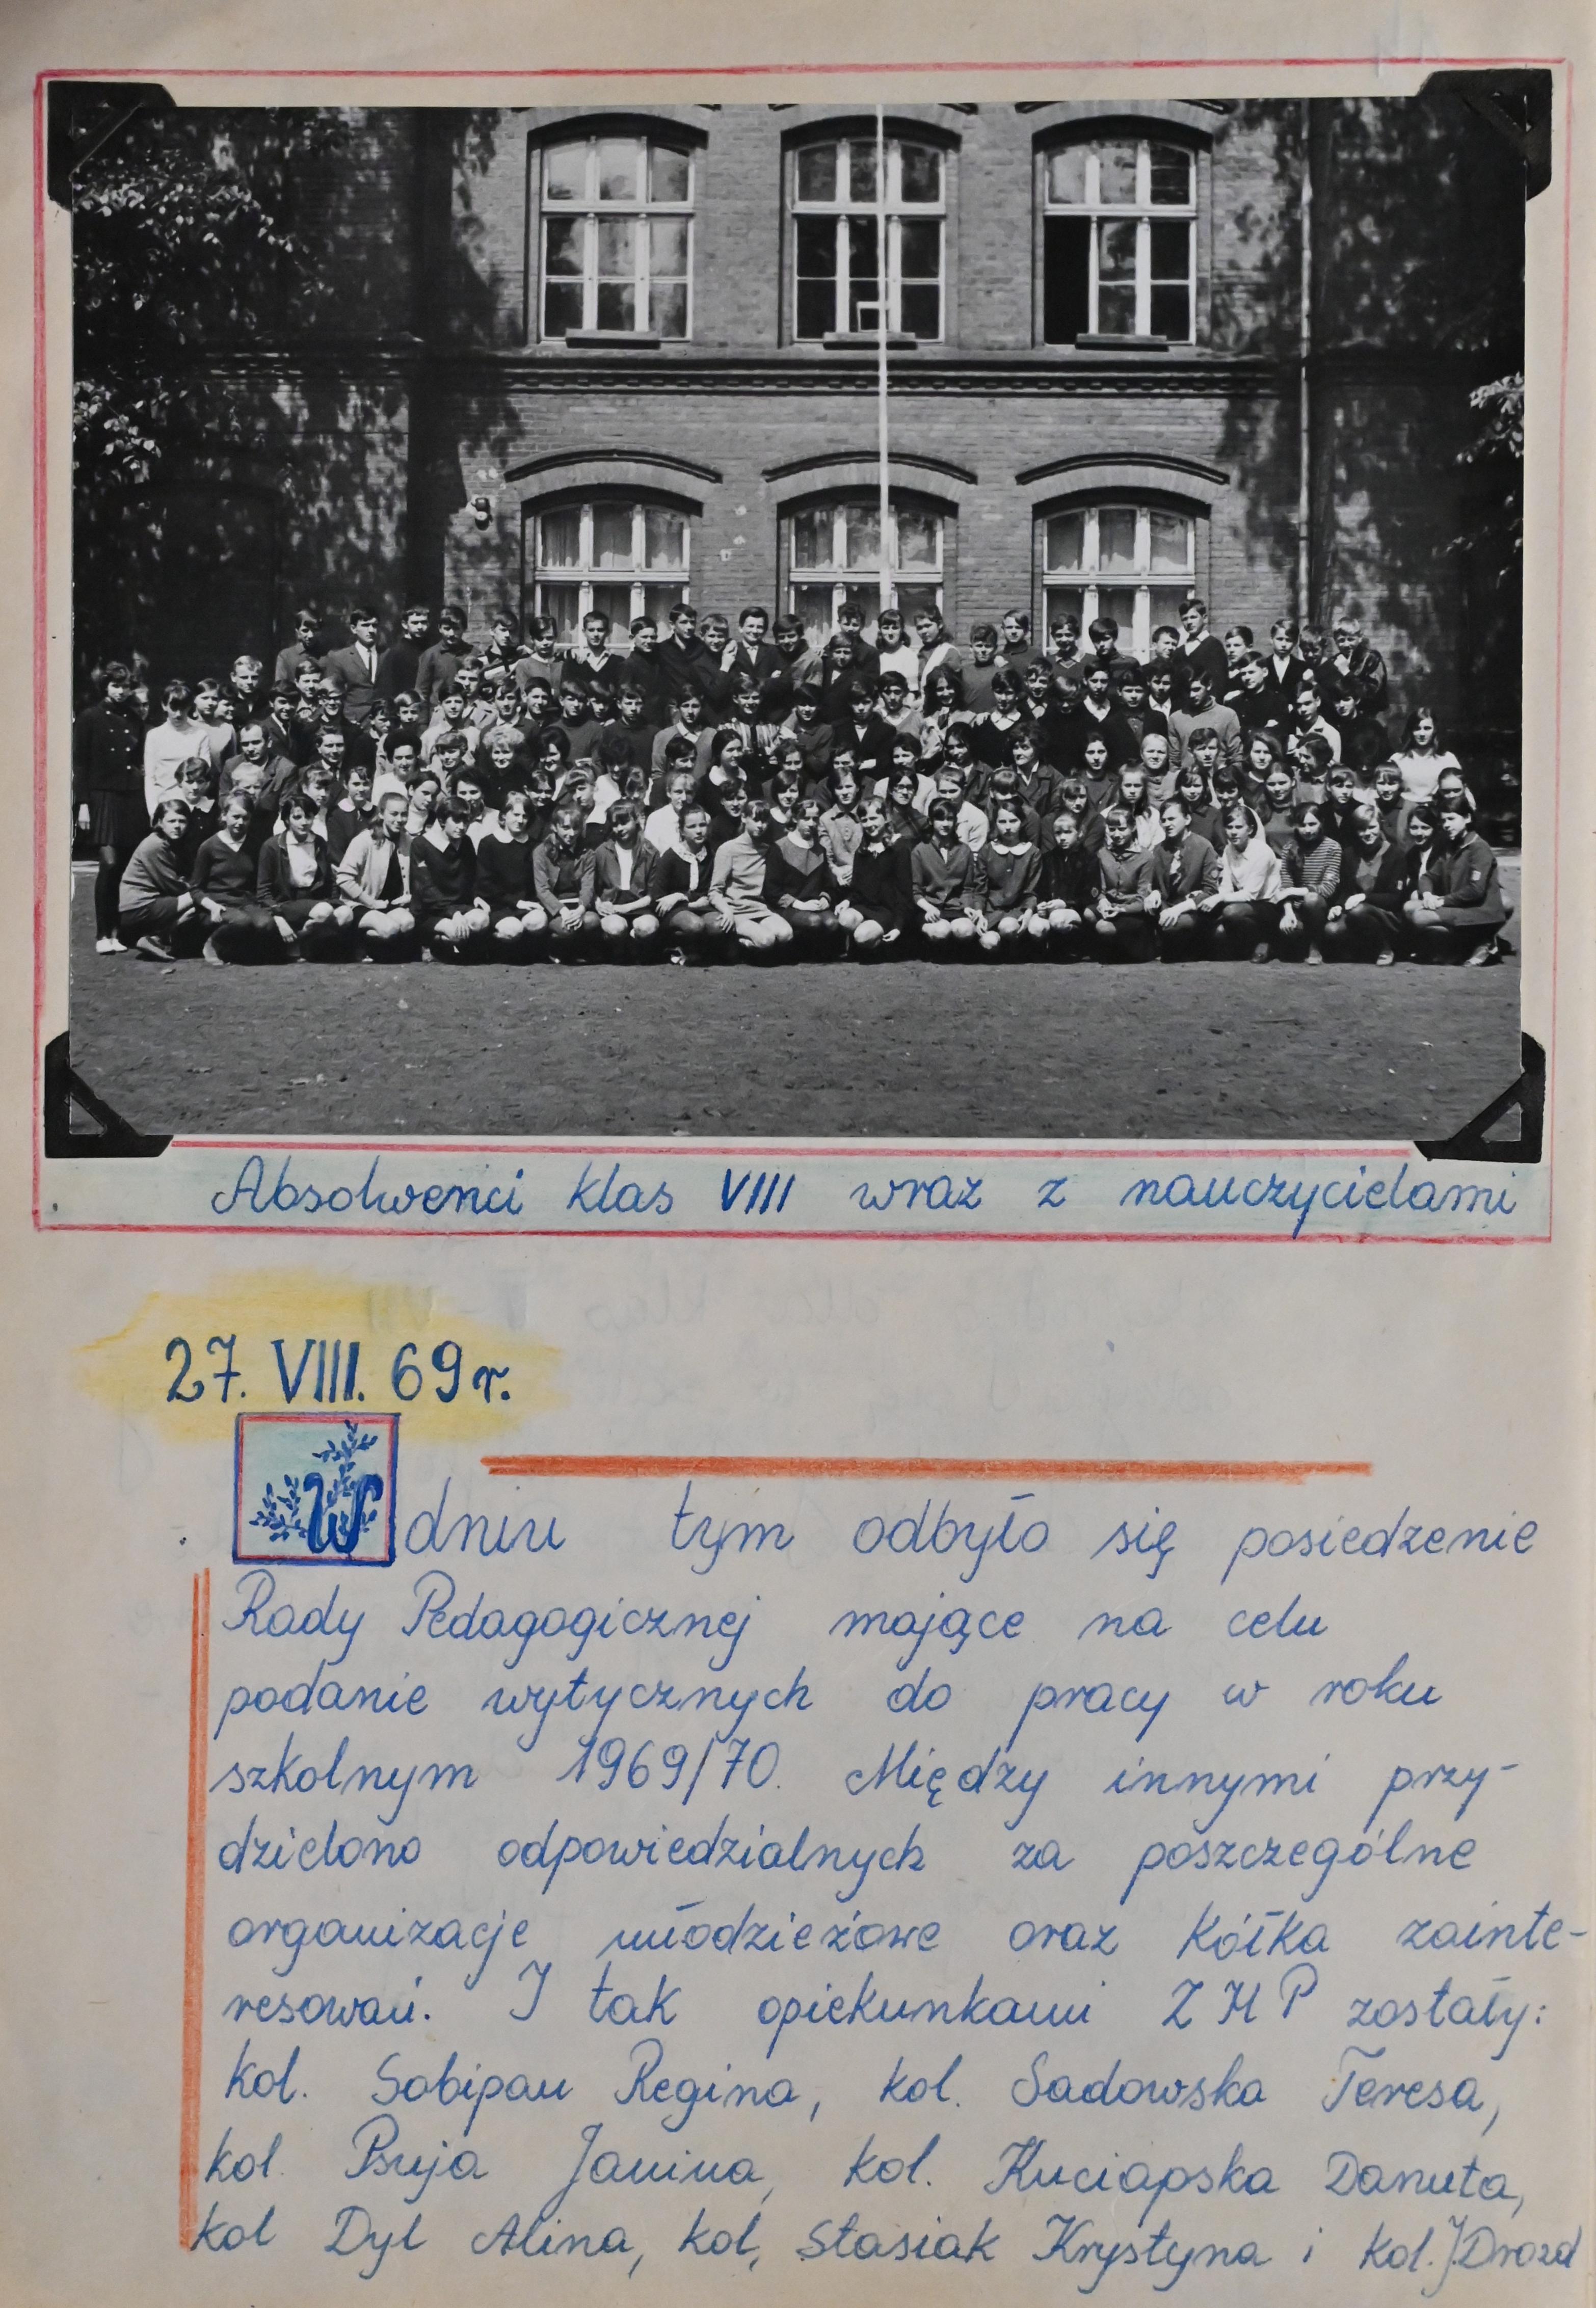 Absolwenci klas VIII wraz z nauczycielami
27. VIII. 69 r.
W dniu tym odbyło się posiedzenie
Rady Pedagogicznej mające na celu
podanie wytycznych do pracy w roku
szkolnym 1969/70. Między innymi przy-
dzielono odpowiedzialnych za poszczególne
organizacje młodzieżowe oraz kółka zainte-
resowań. I tak opiekunkami ZHP zostały:
kol. Sobipan Regina, kol. Sadowska Teresa,
kol. Psuja Janina, kol. Kuciapska Danuta,
kol Dyl Alina, kol, Stasiak Krystyna i kol. J Drozd